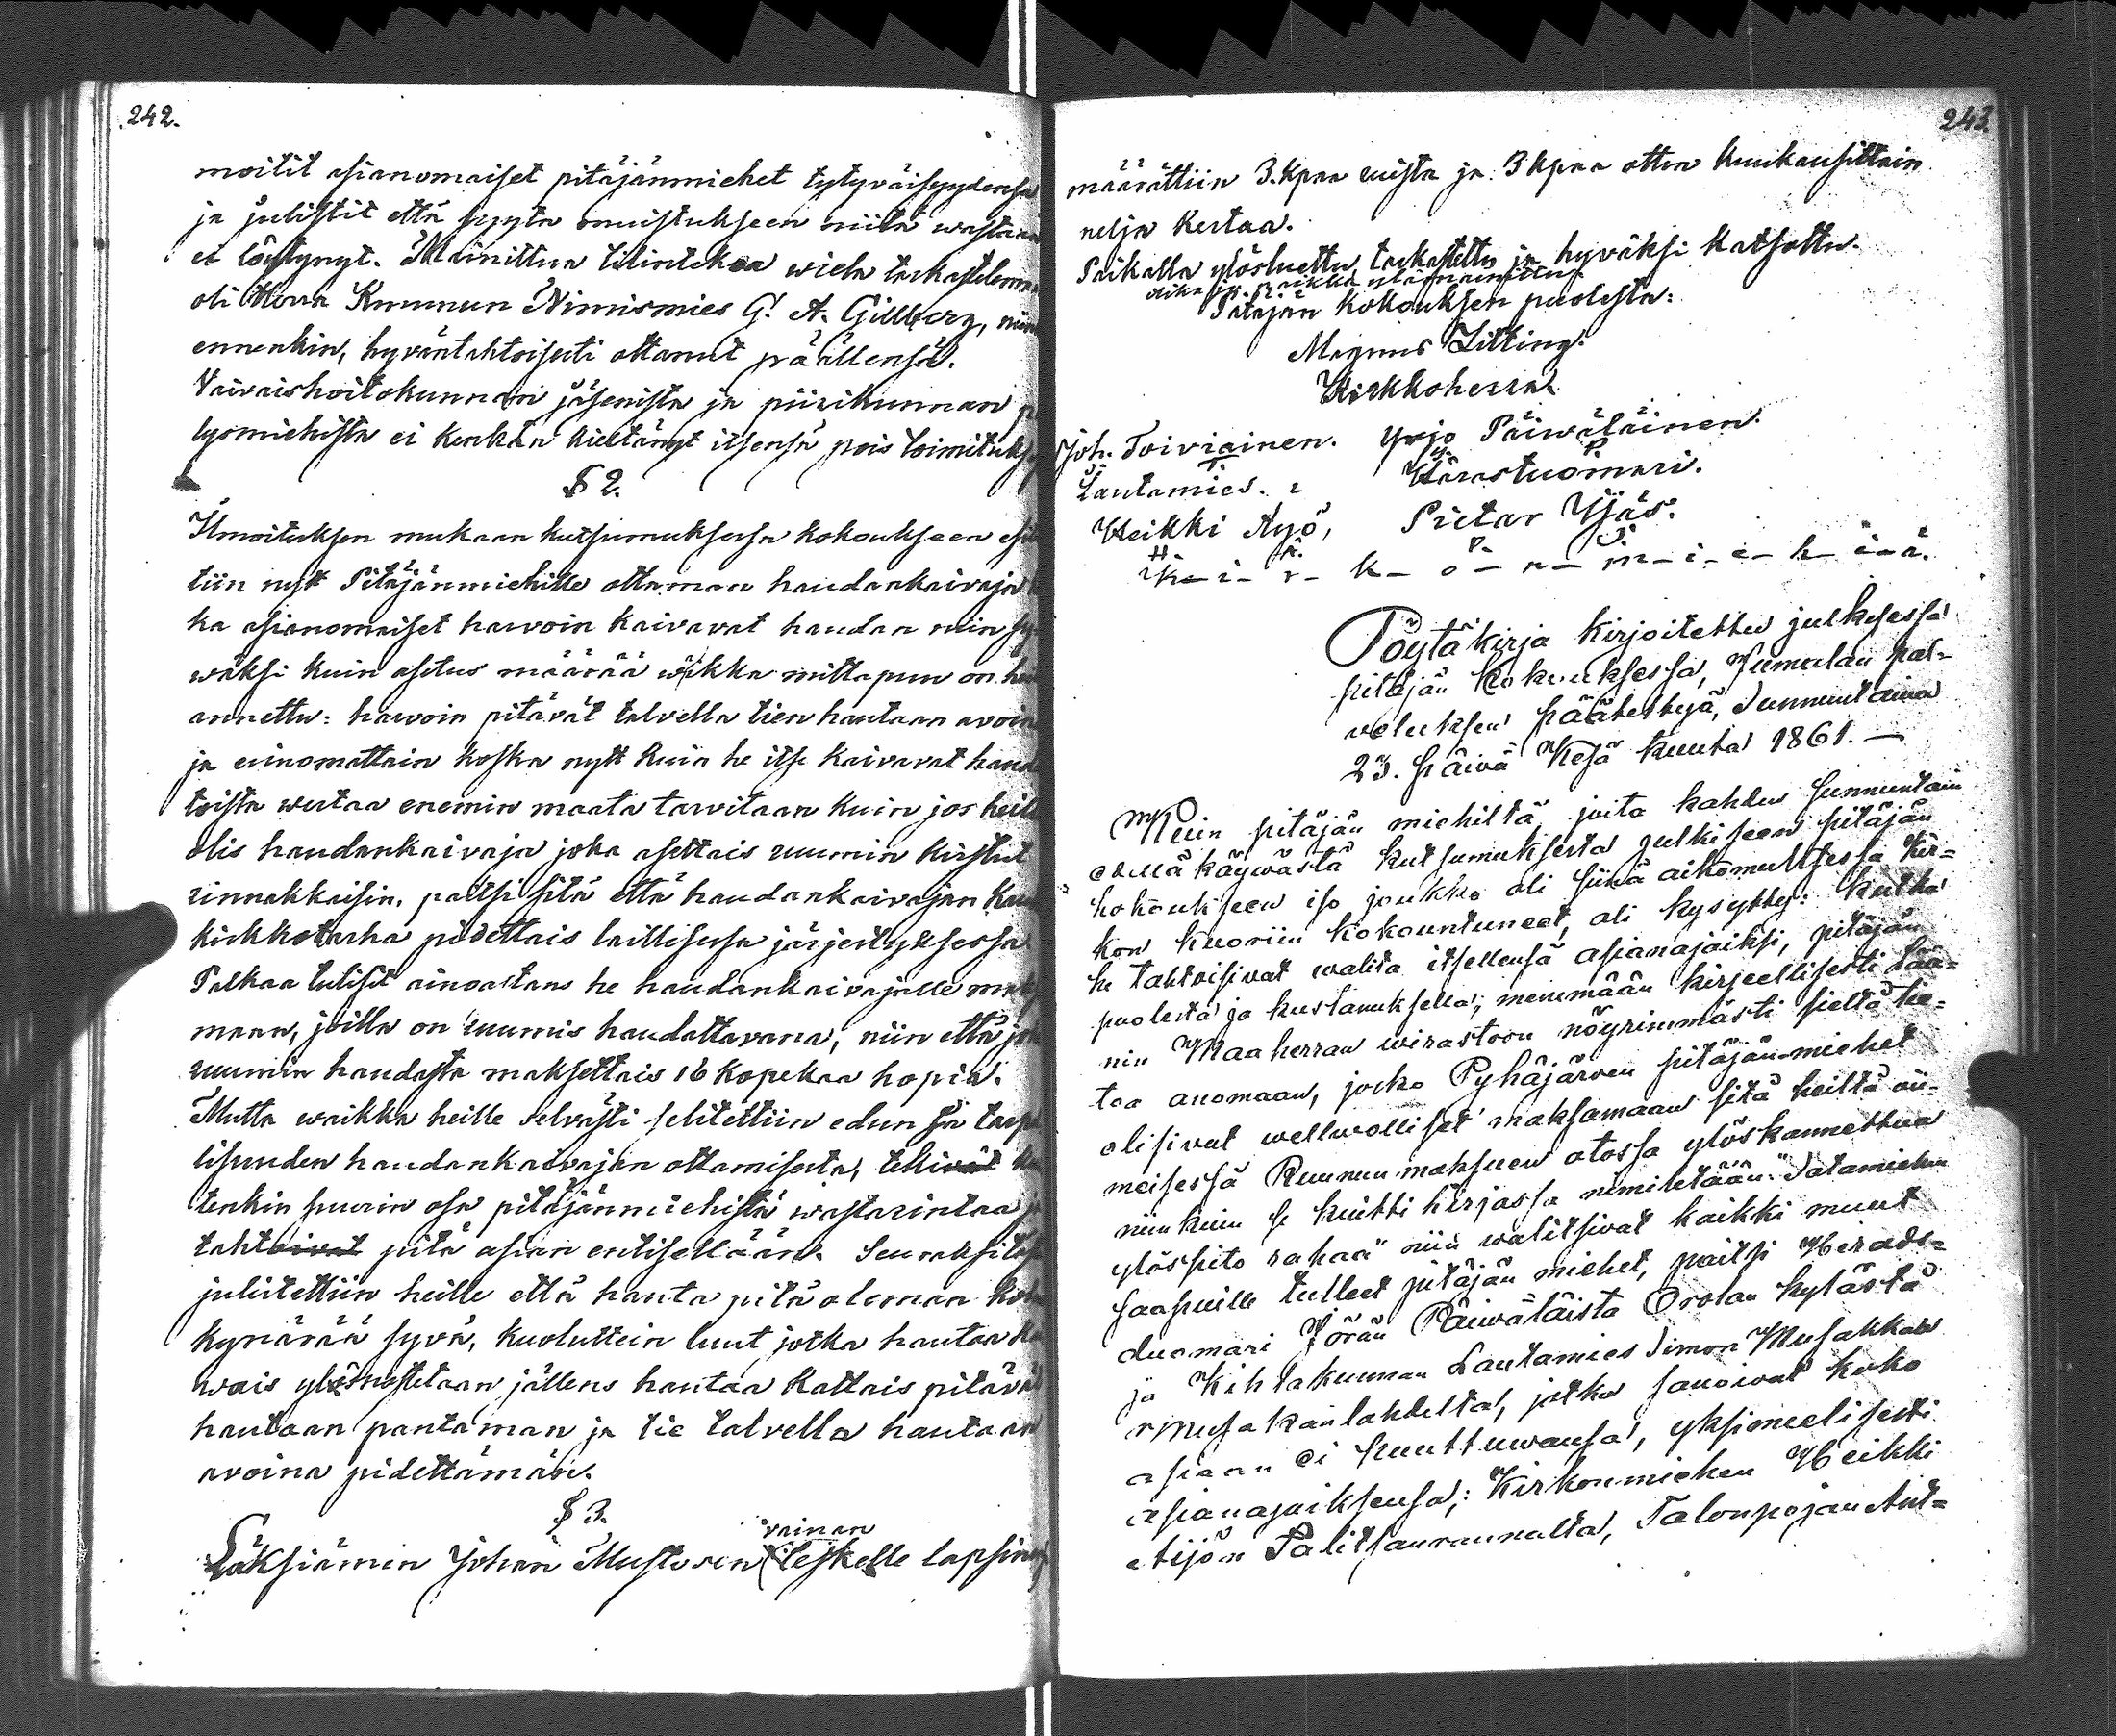 242.
moitit asianomaiset pitäjänmiehet tytyväisyydensä
ja julistit että syytä muistukseen niitä wastaan
ei löytynyt. Mainittua tilintekoa wielä tarkastelemaan
oli Herra Kruunun Nimismies G. A. Gillberg, niin
ennenkin, hyväntahtoisesti ottanut päällensä.
Vaivaishoitokunnan jäsenistä ja piirikunnan
lysmiehistä ei kenkän kieltänyt itsensä pois toimituks
§ 2.
Ilmoituksen mukaan kutsumuksesa kokoukseen esi
tiin nytt Pitäjänmiehille ottaman haudankaivajan
ka asianomaiset harvoin kaivavat haudan niin sy
wäksi kuin asetus määrää waikka mittapuu on hei
annettu: harvoin pitävät talvella tien hautaan avoin
ja erinomattain koska nytt kuin he itse kaivavat haud
toista wertaa enemin maata tarvitaan kuin jos heill
olis haudankaivaja joka asettais ruumin kirstut
rinnakkaisin, paitsi sitä että haudankaivajan kau
kirkkotarha pidettäis laillisessa järjestyksessä
Palkaa tulisit ainoastans he haudankaivajalle mak
maan, joilla on ruumis haudattavana, niin että jo
ruumin haudasta maksettais 16 kopekaa hopia.
Mutta waikka heille selvästi selitettiin edun ja tarp
lisuuden haudankaivajan ottamisesta, tekivät
tenkin suurin osa pitäjänmiehistä wastarintaa
tahtoivat pitä asian entisellään. Seuraksi
julistettiin heille että hauta pitä oleman
kynärää syvä, kuoluttein luut jotka hautaa
wais ylösnostetaan jällens hautaa kattais pitävät
hautaan pantaman ja tie talvella hautaan
avoina pidettämän.
§ 3.
vainan
Läksiämen Johan Mustosen leskelle lapsin
243.
määrättiin 3. kpaa ruista ja 3 kpaa ottra kuukausittain
neljä kertaa.
Paikalla ylösluettu, tarkastettu ja hyväksi katsottu.
aika ja paikka ylämainittu
Pitäjän kokouksen puolesta:
Magnus Litting.
Kirkkoherra.
Joh. Toiviainen. Yrjo Päiwäläinen.
T. Y. P.
Lautamies. Härastuomari.
Heikki Äyö, Pietar Yjäs.
H. Ä. P. J.
K-i-r-k-o-n-m-i-e-h-i-ä.
Pöytäkirja kirjoitettu julkesessa
pitäjän kokouksessa, Jumalan pal-
veluksen päätettyä, Sunnuntaina
23. päivä Kesä kuuta 1861. —
Kuin pitäjän miehiltä, joita kahden sunnuntain
edellä käywästä kutsumuksesta julkiseen pitäjän
kokoukseen iso joukko oli siinä aikomuksessa kir-
kon kuoriin kokountuneet, oli kysytty: kutka
he tahtoisivat walita itsellensä asianajaiksi, pitäjän
puolesta ja kustanuksella, menemään kirjeellisesti Lää-
nin Maaherran wirastoon nöyrimmästi sieltä tie-
toa anomaan, jocko Pyhäjärven pitäjän-miehet
olisivat wellwolliset maksamaan sitä heiltä vii-
meisessä Ruunun maksuen otossa ylöskannettua
niin kuin se kuitti kirjassa nimitetään: "Satamiehen
ylöspito rahaa" niin walitsivat kaikki muut
saapuille tulleet pitäjän miehet, paitsi Härads-
duomari Jörän Päiwäläistä Orolan kylästä
ja Kihlakunnan Lautamies Simon Musakkaa
Musakanlahdelta, jotka sanoivat koko
asiaan ei suuttuwansa, yksimeelisesti
asianajaiksensa; Kirkonmiehen Heikki
Äijön Salitsanrannalta, Talonpojan Ant-